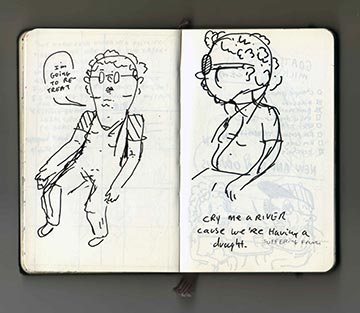 I'M
GOING
TO RE-
TREAT
CRY ME A RIVER
CAUSE WE'RE HAVING A
DROUGHT.
SUFFERING FROM